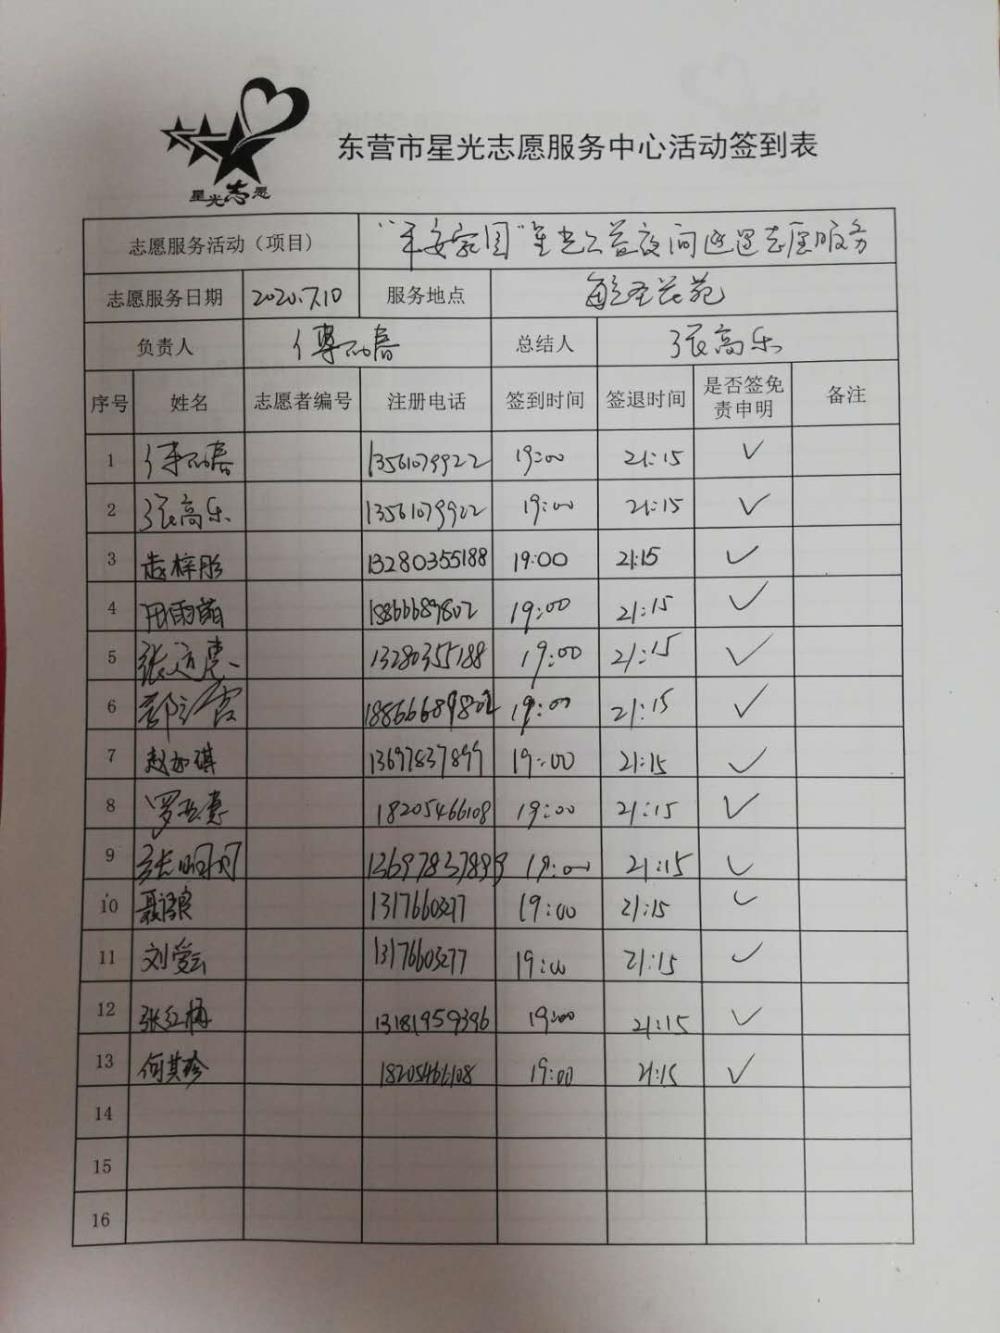 星光志愿
东营市星光志愿服务中心活动签到表
志愿服务活动（项目） “平安家园”星光公益夜间巡逻志愿服务
志愿服务日期 2020.7.10 服务地点
负责人 总结人 张高乐
序号 姓名 志愿者编号 注册电话 签到时间 签退时间 是否签免责申明 备注
1 13561079922 19:00 21:15 ✓
2 张高乐 13561079922 19:00 21:15 ✓
3 袁梓彤 13280355188 19:00 21:15 ✓
4 田雨萌 18866689802 19:00 21:15 ✓
5 13280355188 19:00 21:15 ✓
6 18866689802 19:00 21:15 ✓
7 赵如琪 13697837899 19:00 21:15 ✓
8 18205466108 19:00 21:15 ✓
9 张明月 13697837899 19:00 21:15 ✓
10 13176603277 19:00 21:15 ✓
11 刘爱云 13176603277 19:00 21:15 ✓
12 张红梅 13181959396 19:00 21:15 ✓
13 何其珍 18205466108 19:00 21:15 ✓
14
15
16